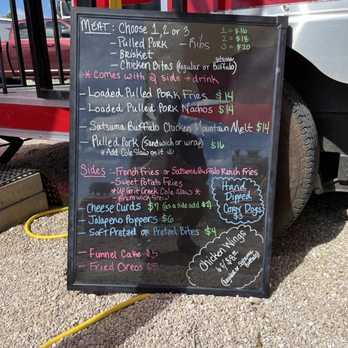 MEAT: Choose 1, 2 or 3
1 = $16
2 = $18
3 = $20
- Pulled Pork - Ribs
- Brisket
- Chicken Bites (Regular or Satsuma Buffalo)
* Comes with a side + drink
- Loaded Pulled Pork Fries $14
- Loaded Pulled Pork Nachos $14
- Satsuma Buffalo Chicken Mountain Melt $14
- Pulled Pork (Sandwich or wrap) $16
*Add Cole Slaw on it
Sides: - French Fries or Satsuma Buffalo Ranch Fries
- Sweet Potato Fries
* Up Grit Creek Cole Slaw *
- Brunswick Stew
- Cheese Curds $7 (as a side add $2)
- Jalapeno Poppers $6
- Soft Pretzel or Pretzel Bites $4
- Funnel Cake $5
- Fried Oreos $5
Hand
Dipped
Corn Dogs
Chicken Wings
(Regular or Satsuma Buffalo)